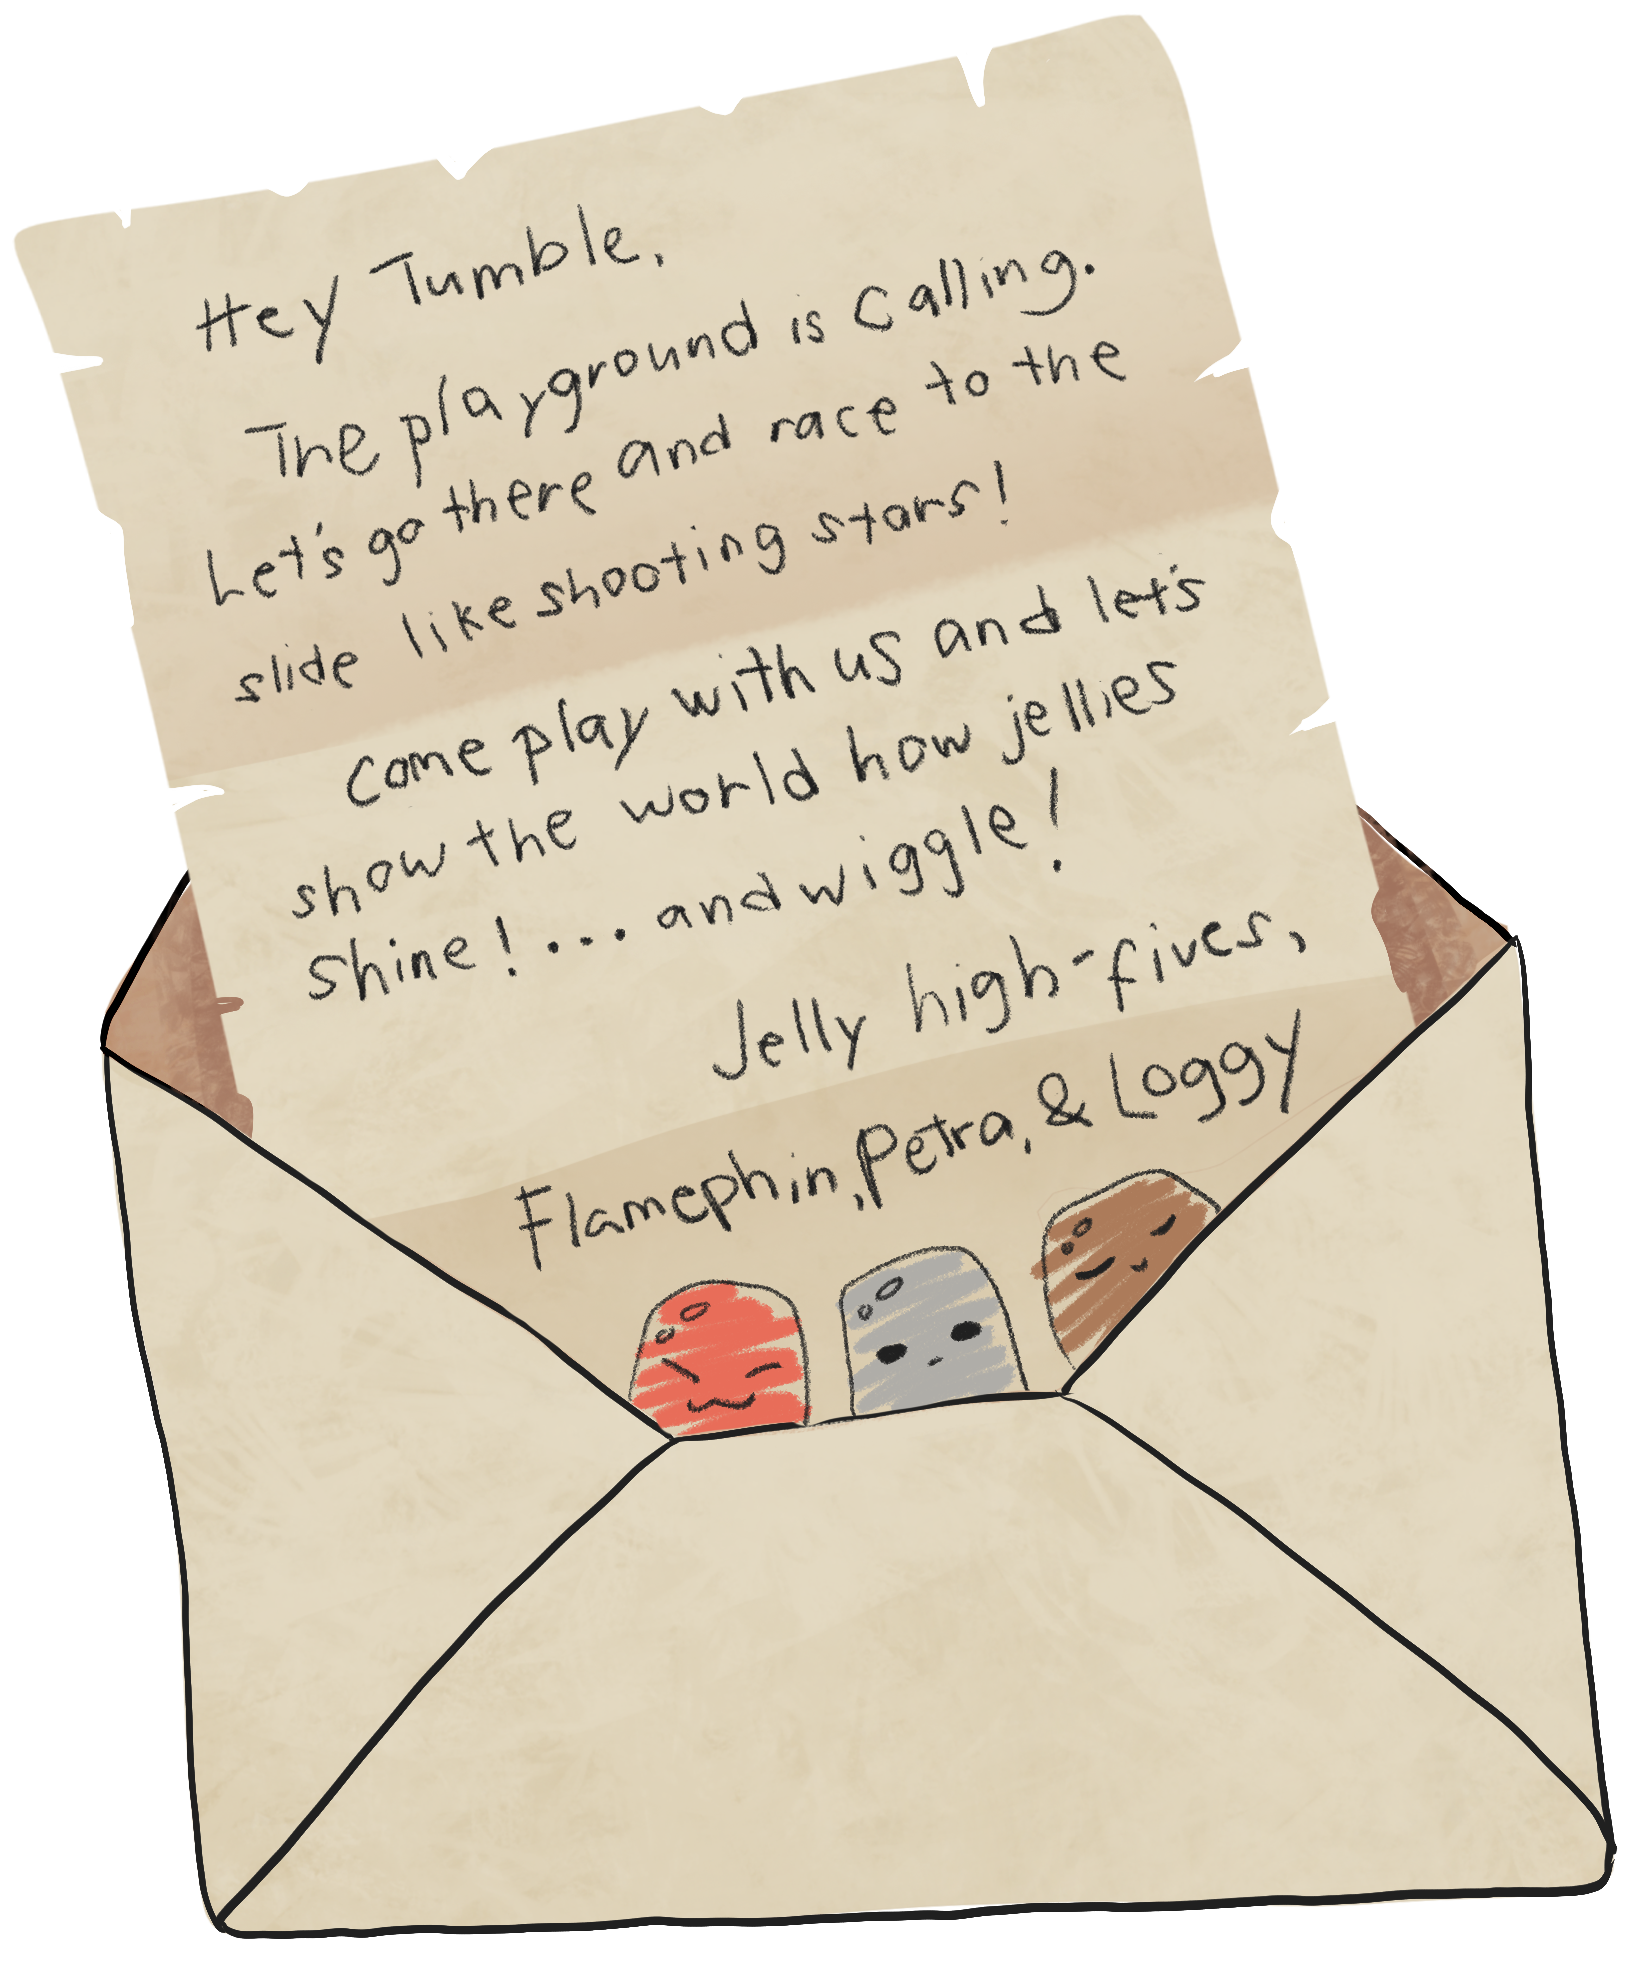 Hey Tumble,
The playground is calling.
Let's go there and race to the
slide like shooting stars!
Come play with us and let's
show the world how jellies
shine!... and wiggle!
Jelly high-fives,
Flamephin, Petra, & Loggy